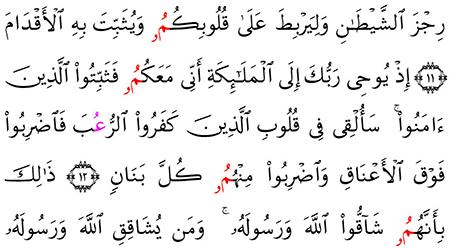 رِجْزَ ٱلشَّيْطَٰنِ وَلِيَرْبِطَ عَلَىٰ قُلُوبِكُمُۥ وَيُثَبِّتَ بِهِ ٱلْأَقْدَامَ
١١ إِذْ يُوحِى رَبُّكَ إِلَى ٱلْمَلَٰٓئِكَةِ أَنِّى مَعَكُمُۥ فَثَبِّتُوا۟ ٱلَّذِينَ
ءَامَنُوا۟ ۚ سَأُلْقِى فِى قُلُوبِ ٱلَّذِينَ كَفَرُوا۟ ٱلرُّعُبَ فَٱضْرِبُوا۟
فَوْقَ ٱلْأَعْنَاقِ وَٱضْرِبُوا۟ مِنْهُمُۥ كُلَّ بَنَانٍ ١٢ ذَٰلِكَ
بِأَنَّهُمُۥ شَآقُّوا۟ ٱللَّهَ وَرَسُولَهُۥ ۚ وَمَن يُشَاقِقِ ٱللَّهَ وَرَسُولَهُۥ